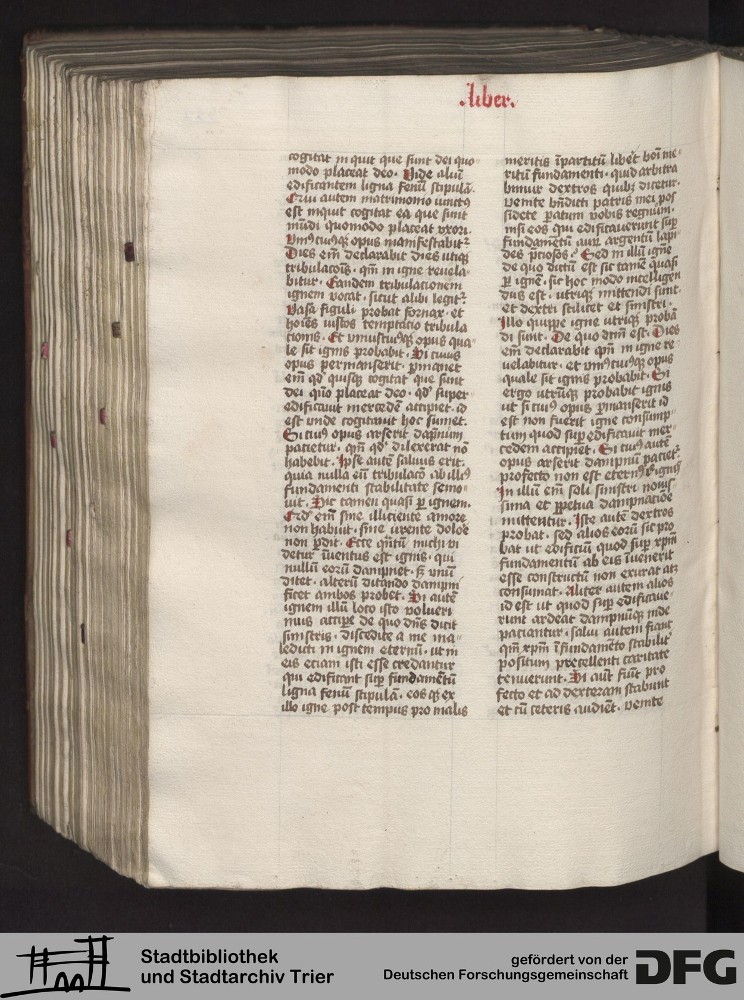 .liber.
cogitat inquit que sunt dei quo
modo placeat deo. Vide aliuͫ
edificantem ligna fenuͫ stipulā.
Qui autem matrimonio iunctꝰ
est inquit cogitat ea que sunt
mūdi quomodo placeat vxori.
Vniꝰcuiꝰqꝫ opus manifestabitͬ.
Dies em̄ declarabit dies vtiqꝫ
tribulacōis. qm̄ in igne reuela
bitur. Eandem tribulacionem
ignem vocat. sicut alibi legitͬ.
Vasa figuli probat fornax. et
hoīes iustos temptacio tribula
cionis. Et vniuscuiꝰqꝫ opus qua
le sit ignis probabit. Si cuius
opus permanserit. ꝑmanet
em̄ qd̄ quisqꝫ cogitat que sunt
dei quō placeat deo. qd̄ super
edificauit mercedē accipiet. id
est vnde cogitauit hoc sumet.
Si cuiꝰ opus arserit dāpnum
pacietur. qm̄ qd̄ dilexerat nō
habebit. Ipse autē saluus erit.
quia nulla eū tribulacō ab illiꝰ
fundamenti stabilitate semo
uit. Sic tamen quasi ꝑ ignem.
Qd̄ em̄ sine illiciente amore
non habuit. sine vrente dolore
non ꝑdit. Ecce qn̄tū michi vi
detur īuentus est ignis. qui
nullū eorū dampnet. sꝫ vnū
ditet. alterū ditando dampni
ficet ambos probet. Si autē
ignem illū loco isto volueri
mus accipe de quo dn̄s dicit
sinistris. discedite a me ma
ledicti in ignem eternū. vt in
eis eciam isti esse credantur
qui edificant suꝑ fundamētū
ligna fenū stipulā. eos qꝫ ex
illo igne post tempus pro malis
meritis īpartitū liberet boni me
ritū fundamenti. quid arbitra
bimur dextros quibꝫ dicetur.
venite bn̄dicti patris mei pos
sidete ꝑatum vobis regnum.
nisi eos qui edificauerunt suꝑ
fundamētū aurū argentū lapi
des p̄ciosos. Sed in illū ignē
de quo dictū est sic tamē quasi
ꝑ ignē. si hoc modo intelligen
dus est. vtriqꝫ mittendi sunt.
et dextri scilicet et sinistri.
Illo quippe igne vtriqꝫ probā
di sunt. De quo dictū est. Dies
em̄ declarabit qm̄ in igne re
uelabitur. et vniꝰcuiꝰqꝫ opus
quale sit ignis probabit. Si
ergo vtrūqꝫ probabit ignis
vt si cuiꝰ opus ꝑmanserit id
est non fuerit igne consump
tum quod suꝑedificauit mer
cedem accipiet. Si cuiꝰ autē
opus arserit dampnū pacietͬ.
profecto non est eternꝰ ille ignꝰ
In illū em̄ soli sinistri nouis
sima et ꝑpetua dampnacōe
mittentur. Iste autē dextros
probat. sed alios eorū sic pro
bat vt edificiū quod suꝑ xpm̄
fundamētū ab eis īuenerit
esse constructū non exurat atqꝫ
consumat. Aliter autem alios
id est vt quod suꝑ edificaue
runt ardeat dampnūqꝫ inde
paciantur. salui autem fiant
qm̄ xpm̄ ī fundamēto stabilitͬ
positum precellenti caritate
tenuerunt. Si aūt fiūt pro
fecto et ad dexteram stabunt
et cū ceteris audiēt. venite
Stadtbibliothek
und Stadtarchiv Trier
gefördert von der
Deutschen Forschungsgemeinschaft
DFG